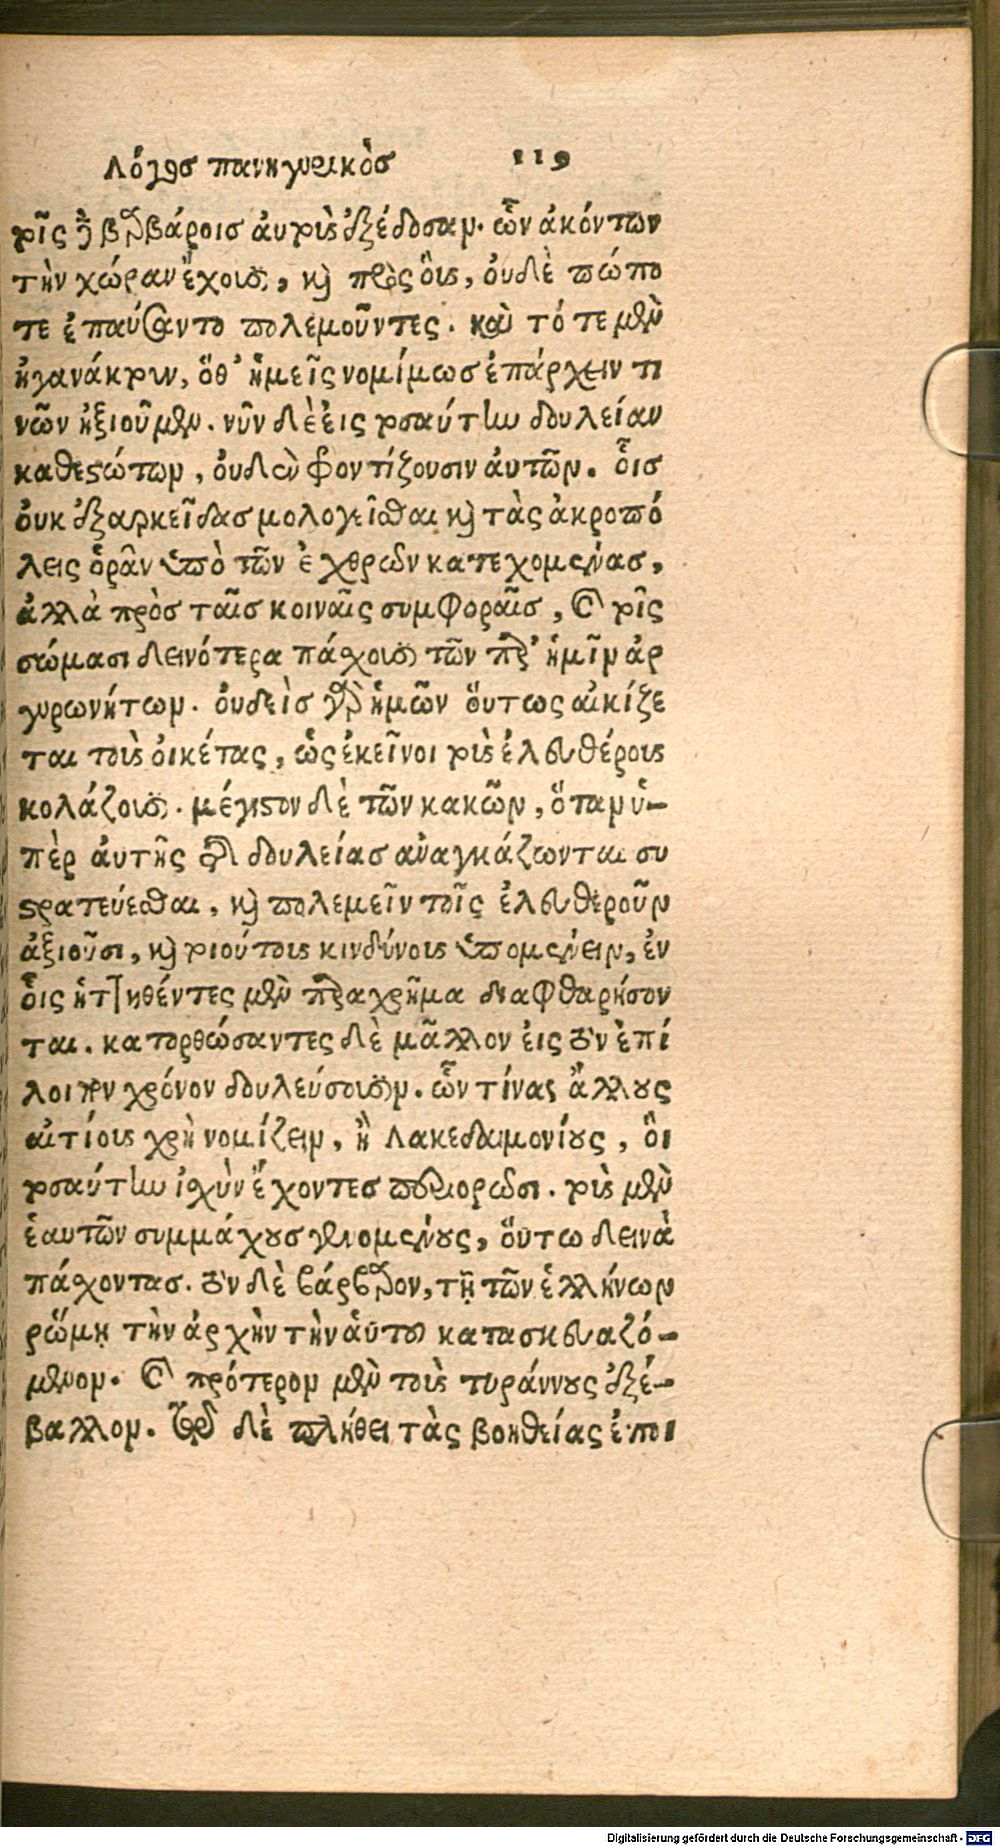 Λόγος πανηγυρικὸς 119
τοῖς δὲ βαρβάροις αὐτοὺς ἐξέδοσαν. ὧν ἀκόντων
τὴν χώραν ἔχουσι, καὶ πρὸς οὓς, οὐδὲ πώπο
τε ἐπαύσαντο πολεμοῦντες. καὶ τότε μὲν
ἠγανάκτουν, ὅθ' ἡμεῖς νομίμως ἐπάρχειν τι
νῶν ἠξιοῦμεν. νῦν δὲ εἰς τοσαύτην δουλείαν
καθεστώτων, οὐδὲν φροντίζουσιν αὐτῶν. οἷς
οὐκ ἐξαρκεῖ δασμολογεῖσθαι καὶ τὰς ἀκροπό
λεις ὁρᾶν ὑπὸ τῶν ἐχθρῶν κατεχομένας,
ἀλλὰ πρὸς ταῖς κοιναῖς συμφοραῖς, καὶ τοῖς
σώμασι δεινότερα πάσχουσι τῶν παρ' ἡμῖν ἀρ
γυρωνήτων. οὐδεὶς γὰρ ἡμῶν οὕτως αἰκίζε
ται τοὺς οἰκέτας, ὡς ἐκεῖνοι τοὺς ἐλευθέρους
κολάζουσι. μέγιστον δὲ τῶν κακῶν, ὅταν ὑ-
πὲρ αὐτῆς τῆς δουλείας ἀναγκάζωνται συ
στρατεύεσθαι, καὶ πολεμεῖν τοῖς ἐλευθεροῦν
ἀξιοῦσι, καὶ τοιούτους κινδύνους ὑπομένειν, ἐν
οἷς ἡττηθέντες μὲν παραχρῆμα διαφθαρήσον
ται. κατορθώσαντες δὲ μᾶλλον εἰς τὸν ἐπί
λοιπον χρόνον δουλεύσουσιν. ὧν τίνας ἄλλους
αἰτίους χρὴ νομίζειν, ἢ Λακεδαιμονίους, οἳ
τοσαύτην ἰσχὺν ἔχοντες περιορῶσι. τοὺς μὲν
ἑαυτῶν συμμάχους γενομένους, οὕτω δεινὰ
πάσχοντας. τὸν δὲ βάρβαρον, τῇ τῶν ἑλλήνων
ῥώμῃ τὴν ἀρχὴν τὴν αὑτοῦ κατασκευαζό-
μενον. καὶ πρότερον μὲν τοὺς τυράννους ἐξέ-
βαλλον. τῷ δὲ πλήθει τὰς βοηθείας ἐποι
Digitalisierung gefördert durch die Deutsche Forschungsgemeinschaft - DFG